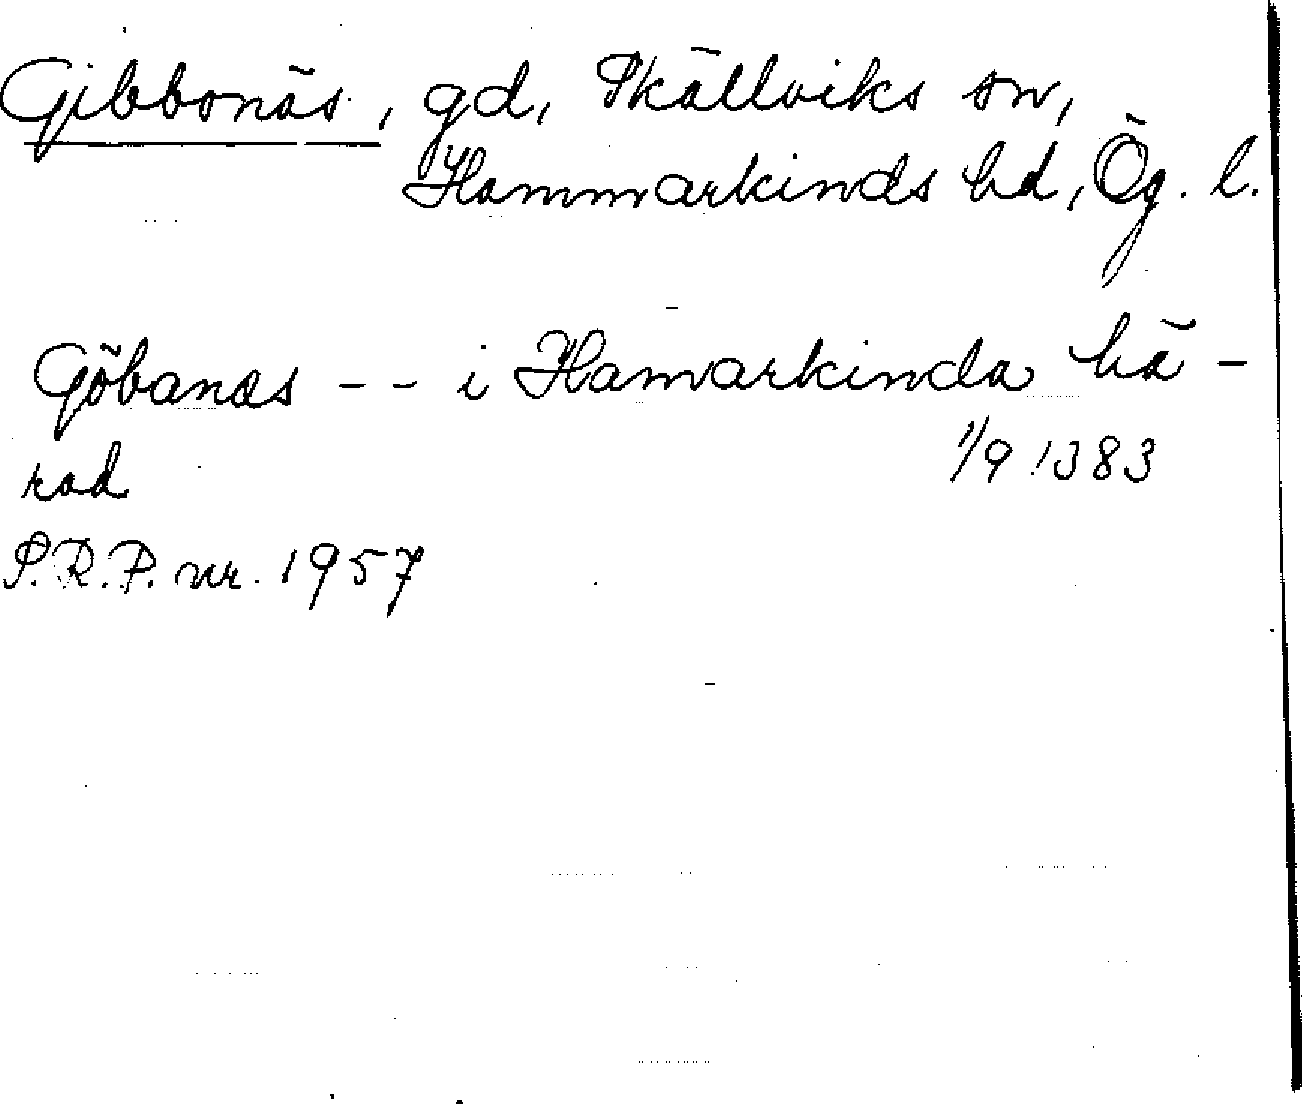 Gibbonäs, gd, Skällviks sn,
Hammarkinds hd, Ög. l.
Göbanæs - - i Hamarkinda hä-
rad 1/9 1383
S.R.P. nr. 1957